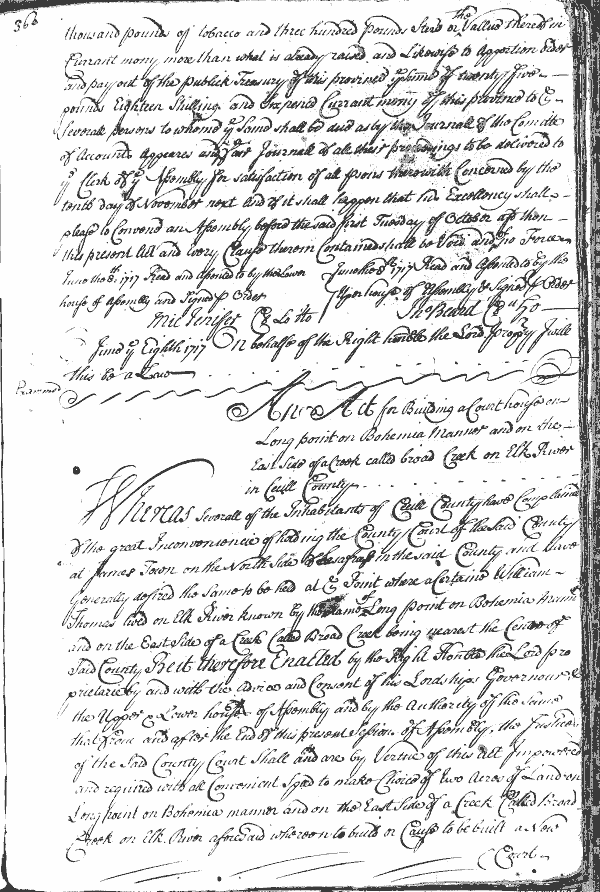 366
thousand pounds of tobacco and three hundred pounds Sterl or the Vallue thereof in
Currant mony more than what is already raised and Likewise to Apportion Order
and pay out of the publick Treasury of this province ye Sume of twenty five
pounds Eighteen Shilling and Six pence Currant mony of this province to ye
Severall persons to whome ye Same shall be due as by the Journall of the Comitte
of Accounts Appeares and fair Journall of all their proceedings to be delivered to
ye Clerk of ye Assembly for satisfaction of all psons therewith Concerned by the
tenth day of November next And if it shall happen that his Excellency shall
please to Convene an Assembly before the said first Tuesday of October as then
this present Act and every Clause therein Contained shall be Void and of no Force
June the 8th 1717 Read and assented to by the Lower
house of Assembly and Signed p Order
June the 8th 1717 Read and Assented to by the
Upper house of Assembly & Signed p Order
Mic Jenifer Cl Lo Ho
Tho Beard Cl up Ho
June ye Eighth 1717 On behalfe of the Right honble the Lord propry I will
this be a Law
Examined
An Act for Building a Court house on
Long point on Bohemia Manner and on the
East Side of a Creek called broad Creek on Elk River
in Cecill County
Whereas Severall of the Inhabitants of Cecill County have Complained
of the great Inconveniencie of holding the County Court of the said County
at James Town on the North Side of Sasafras in the said County and have
Generally desired the Same to be held at ye Point where a Certaine William
Thomas lived on Elk River known by the name of Long point on Bohemia mannr
and on the East Side of a Creek Called Broad Creek being nearest the Center of
Said County Be it therefore Enacted by the Right Honble the Lord pro
prietary by and with the Advice and Consent of his Lordships Governour &
the Upper & Lower houses of Assembly and by the Authority of the Same
that from and after the End of this present Session of Assembly, the Justices
of the Said County Court Shall and are by Vertue of this Act Impowered
and required with all Convenient Speed to make Choice of two Acres of Land on
Long point on Bohemia manner and on the East Side of a Creek Called Broad
Creek on Elk River aforesaid whereon to build or Cause to be built a New
Court